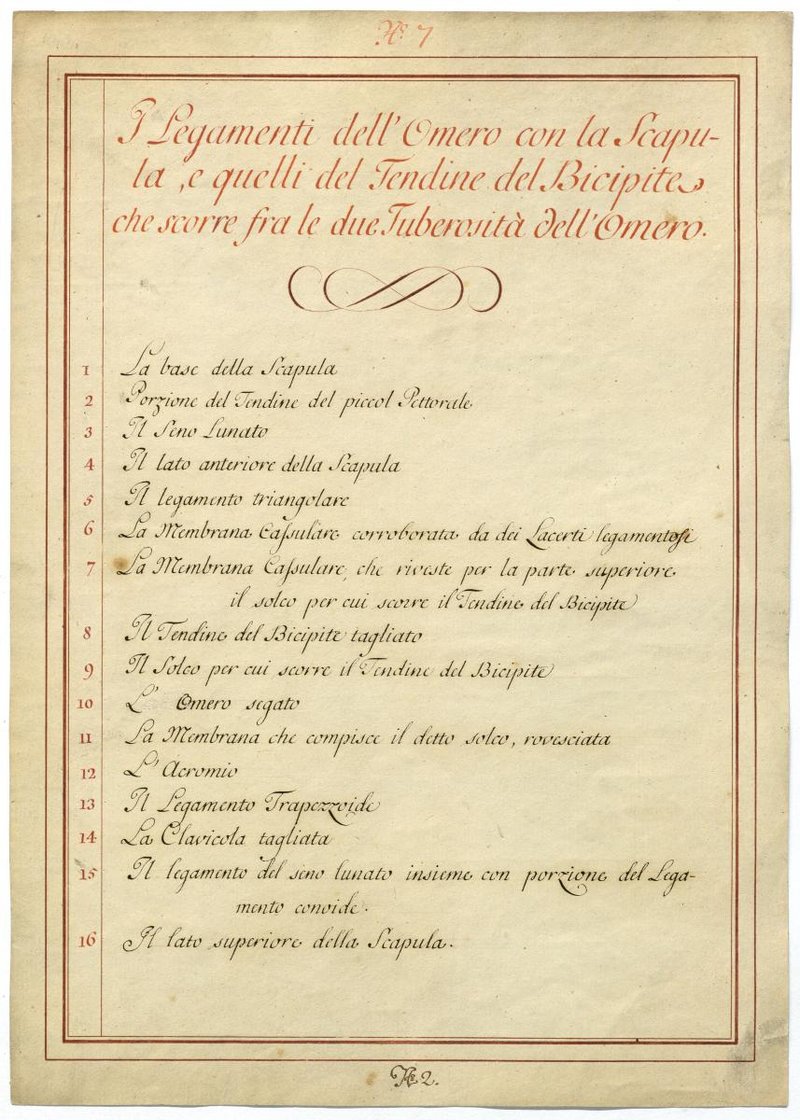 N.º 7
I Legamenti dell'Omero con la Scapu-
la, e quelli del Tendine del Bicipite,
che scorre fra le due Tuberosità dell'Omero.
1 La base della Scapula
2 Porzione del Tendine del piccol Pettorale
3 Il Seno Lunato
4 Il lato anteriore della Scapula
5 Il legamento triangolare
6 La Membrana Caſsulare corroborata da dei Lacerti legamentosi
7 La Membrana Caſsulare, che riveste per la parte superiore
il solco per cui scorre il Tendine del Bicipite
8 Il Tendine del Bicipite tagliato
9 Il Solco per cui scorre il Tendine del Bicipite
10 L' Omero segato
11 La Membrana che compisce il detto solco, rovesciata
12 L' Acromio
13 Il Legamento Trapezzoide
14 La Clavicola tagliata
15 Il legamento del seno lunato insieme con porzione del Lega-
mento conoide.
16 Il lato superiore della Scapula.
2.